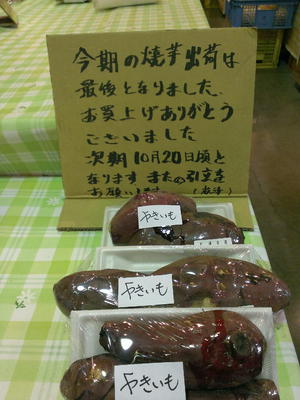 今期の焼芋出荷は
最後となりました、
お買上げありがとう
ございました
次期10月20日頃と
なります またの引立を
お願います。
やきいも
やきいも
やきいも